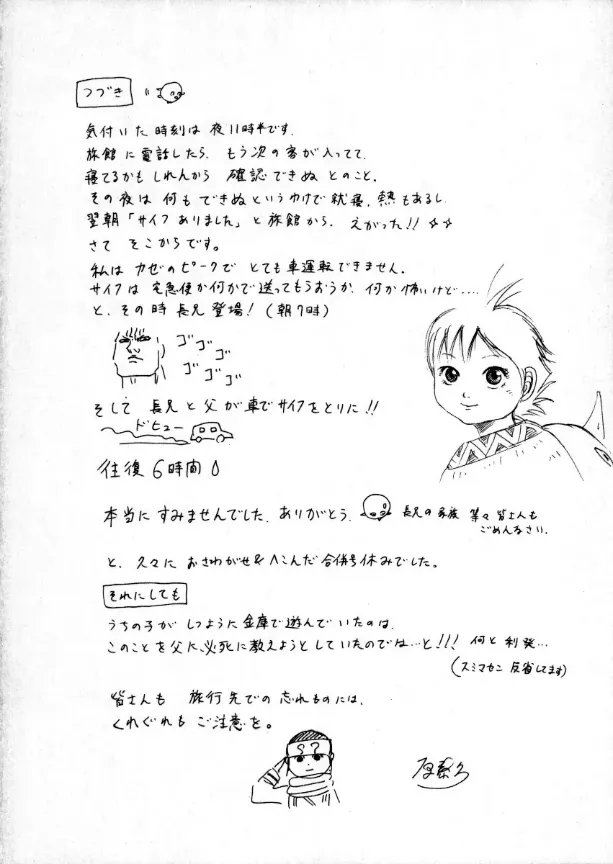 つづき
気付いた時刻は 夜11時半です.
旅館に電話したら、もう次の客が入ってて、
寝てるかもしれんから 確認できぬ とのこと.
その夜は 何もできぬというわけで就寝、熱もあるし.
翌朝「サイフありました」と旅館から、えがった!! ☆☆
さて そこからです。
私は カゼのピークで とても車運転できません.
サイフは 宅急便か何かで送ってもらおうか、何か怖いけど....
と、その時 長兄登場! (朝7時)
ゴゴゴゴ
ゴゴゴ
そして 長兄と父が車でサイフをとりに!!
ドヒュー
往復6時間
本当にすみませんでした、ありがとう.
長兄の家族 等々皆さんも
ごめんなさい.
と、久々に おさわがせ&ヘこんだ合併号休みでした。
それにしても
うちの子が しつように金庫で遊んでいたのは、
このことを父に、必死に教えようとしていたのでは…と!!! 何と利発…
(スミマセン 反省してます)
皆さんも 旅行先での忘れものには、
くれぐれも ご注意を。
??
原泰久